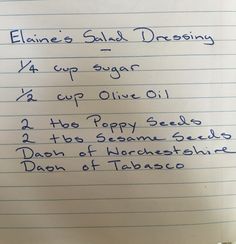 Elaine's Salad Dressing
1/4 cup sugar
1/2 cup Olive Oil
2 tbs Poppy Seeds
2 tbs Sesame Seeds
Dash of Worchestshire
Dash of Tabasco